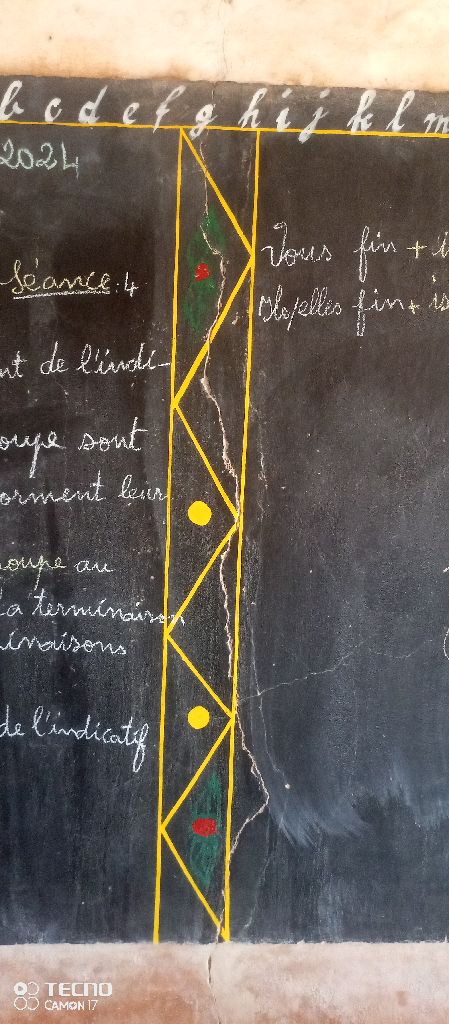 b c d e f g h i j k l m
2024
Séance: 4
nt de l'indi-
oupe sont
orment leur
oupe au
la terminaison
inaisons
de l'indicatif
Vous fin + i
Ils/elles fin + is
TECNO
CAMON 17